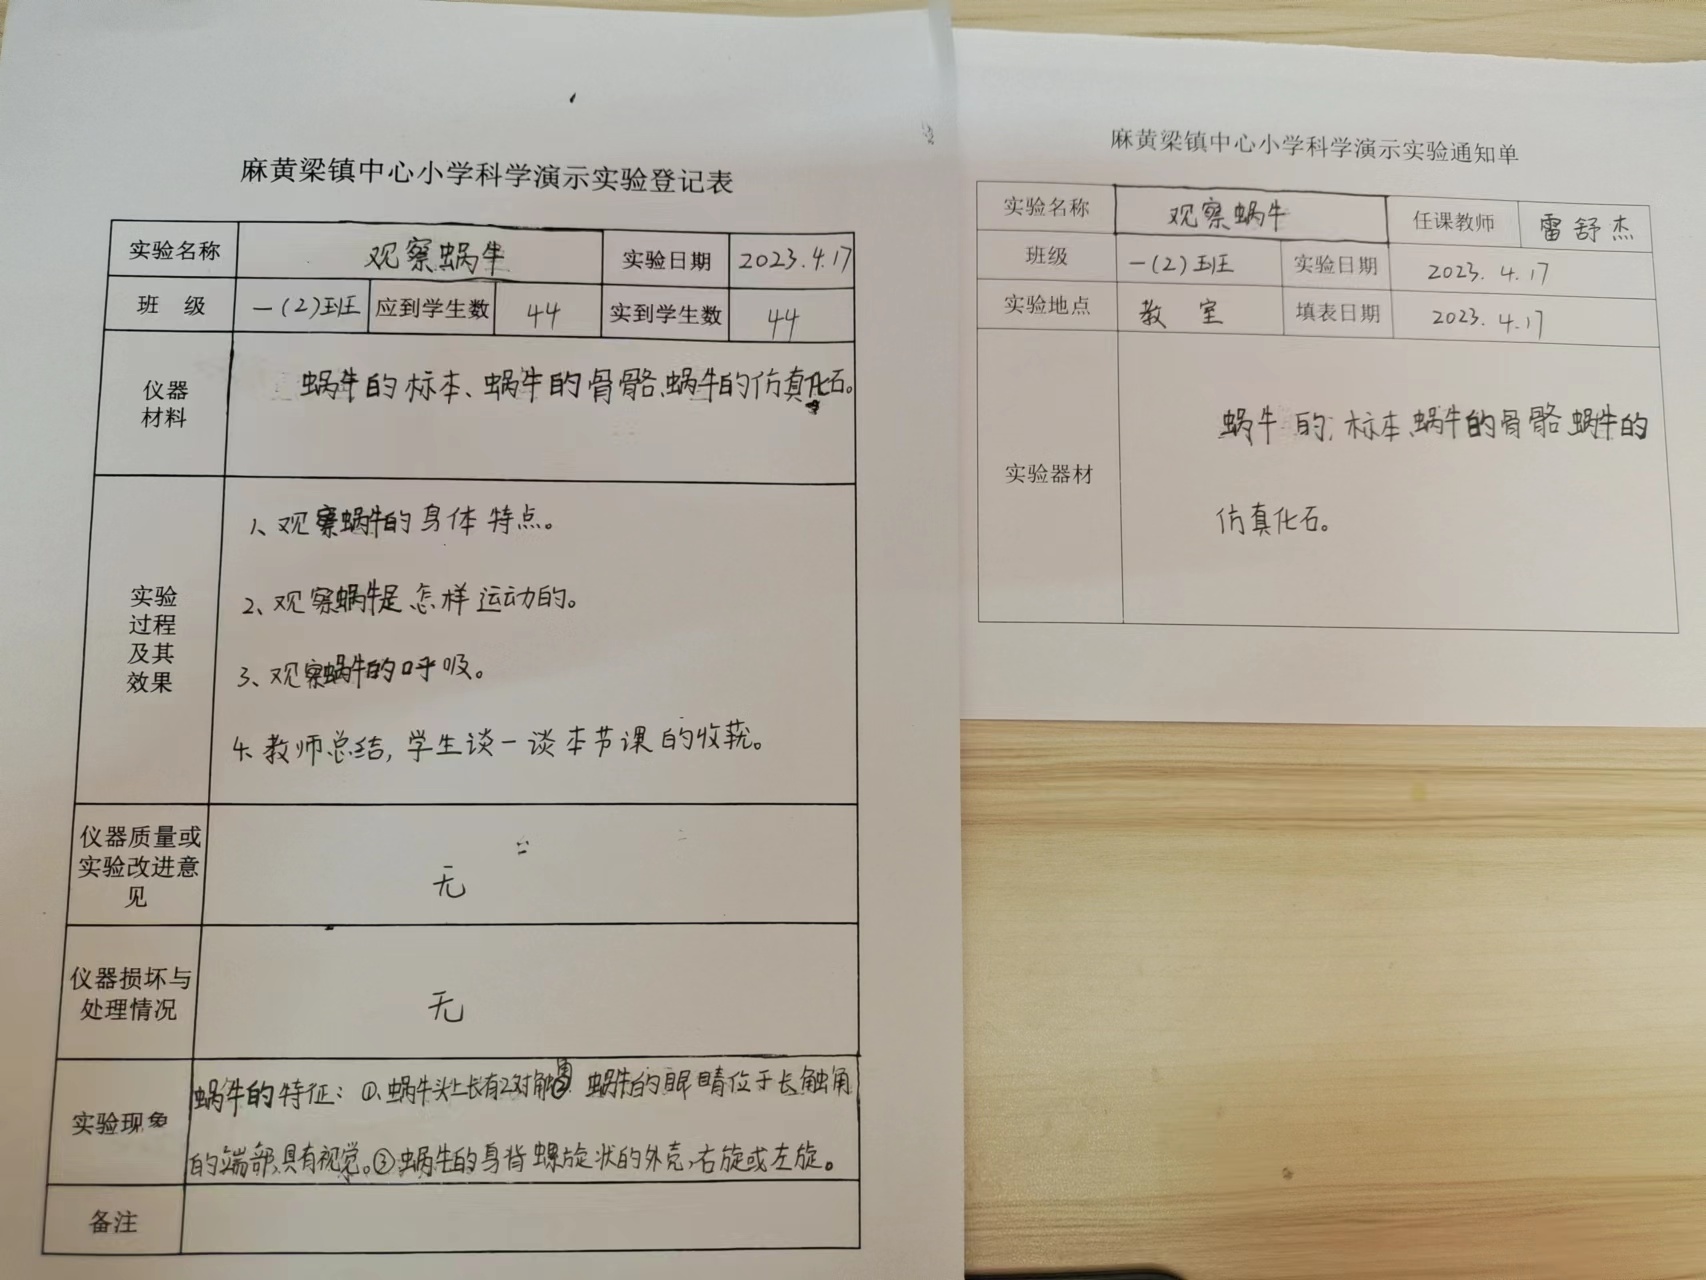 麻黄梁镇中心小学科学演示实验登记表
实验名称 观察蜗牛 实验日期 2023.4.17
班 级 一(2)班 应到学生数 44 实到学生数 44
仪器
材料
蜗牛的标本、蜗牛的骨骼、蜗牛的仿真化石。
实验
过程
及其
效果
1、观察蜗牛的身体特点。
2、观察蜗牛是怎样运动的。
3、观察蜗牛的呼吸。
4、教师总结,学生谈一谈本节课的收获。
仪器质量或
实验改进意
见
无
仪器损坏与
处理情况
无
实验现象
蜗牛的特征:①、蜗牛头上长有2对触角 蜗牛的眼睛位于长触角
的端部,具有视觉。②蜗牛的身背螺旋状的外壳,右旋或左旋。
备注
麻黄梁镇中心小学科学演示实验通知单
实验名称 观察蜗牛 任课教师 雷舒杰
班级 一(2)班 实验日期 2023.4.17
实验地点 教室 填表日期 2023.4.17
实验器材
蜗牛的标本、蜗牛的骨骼、蜗牛的
仿真化石。